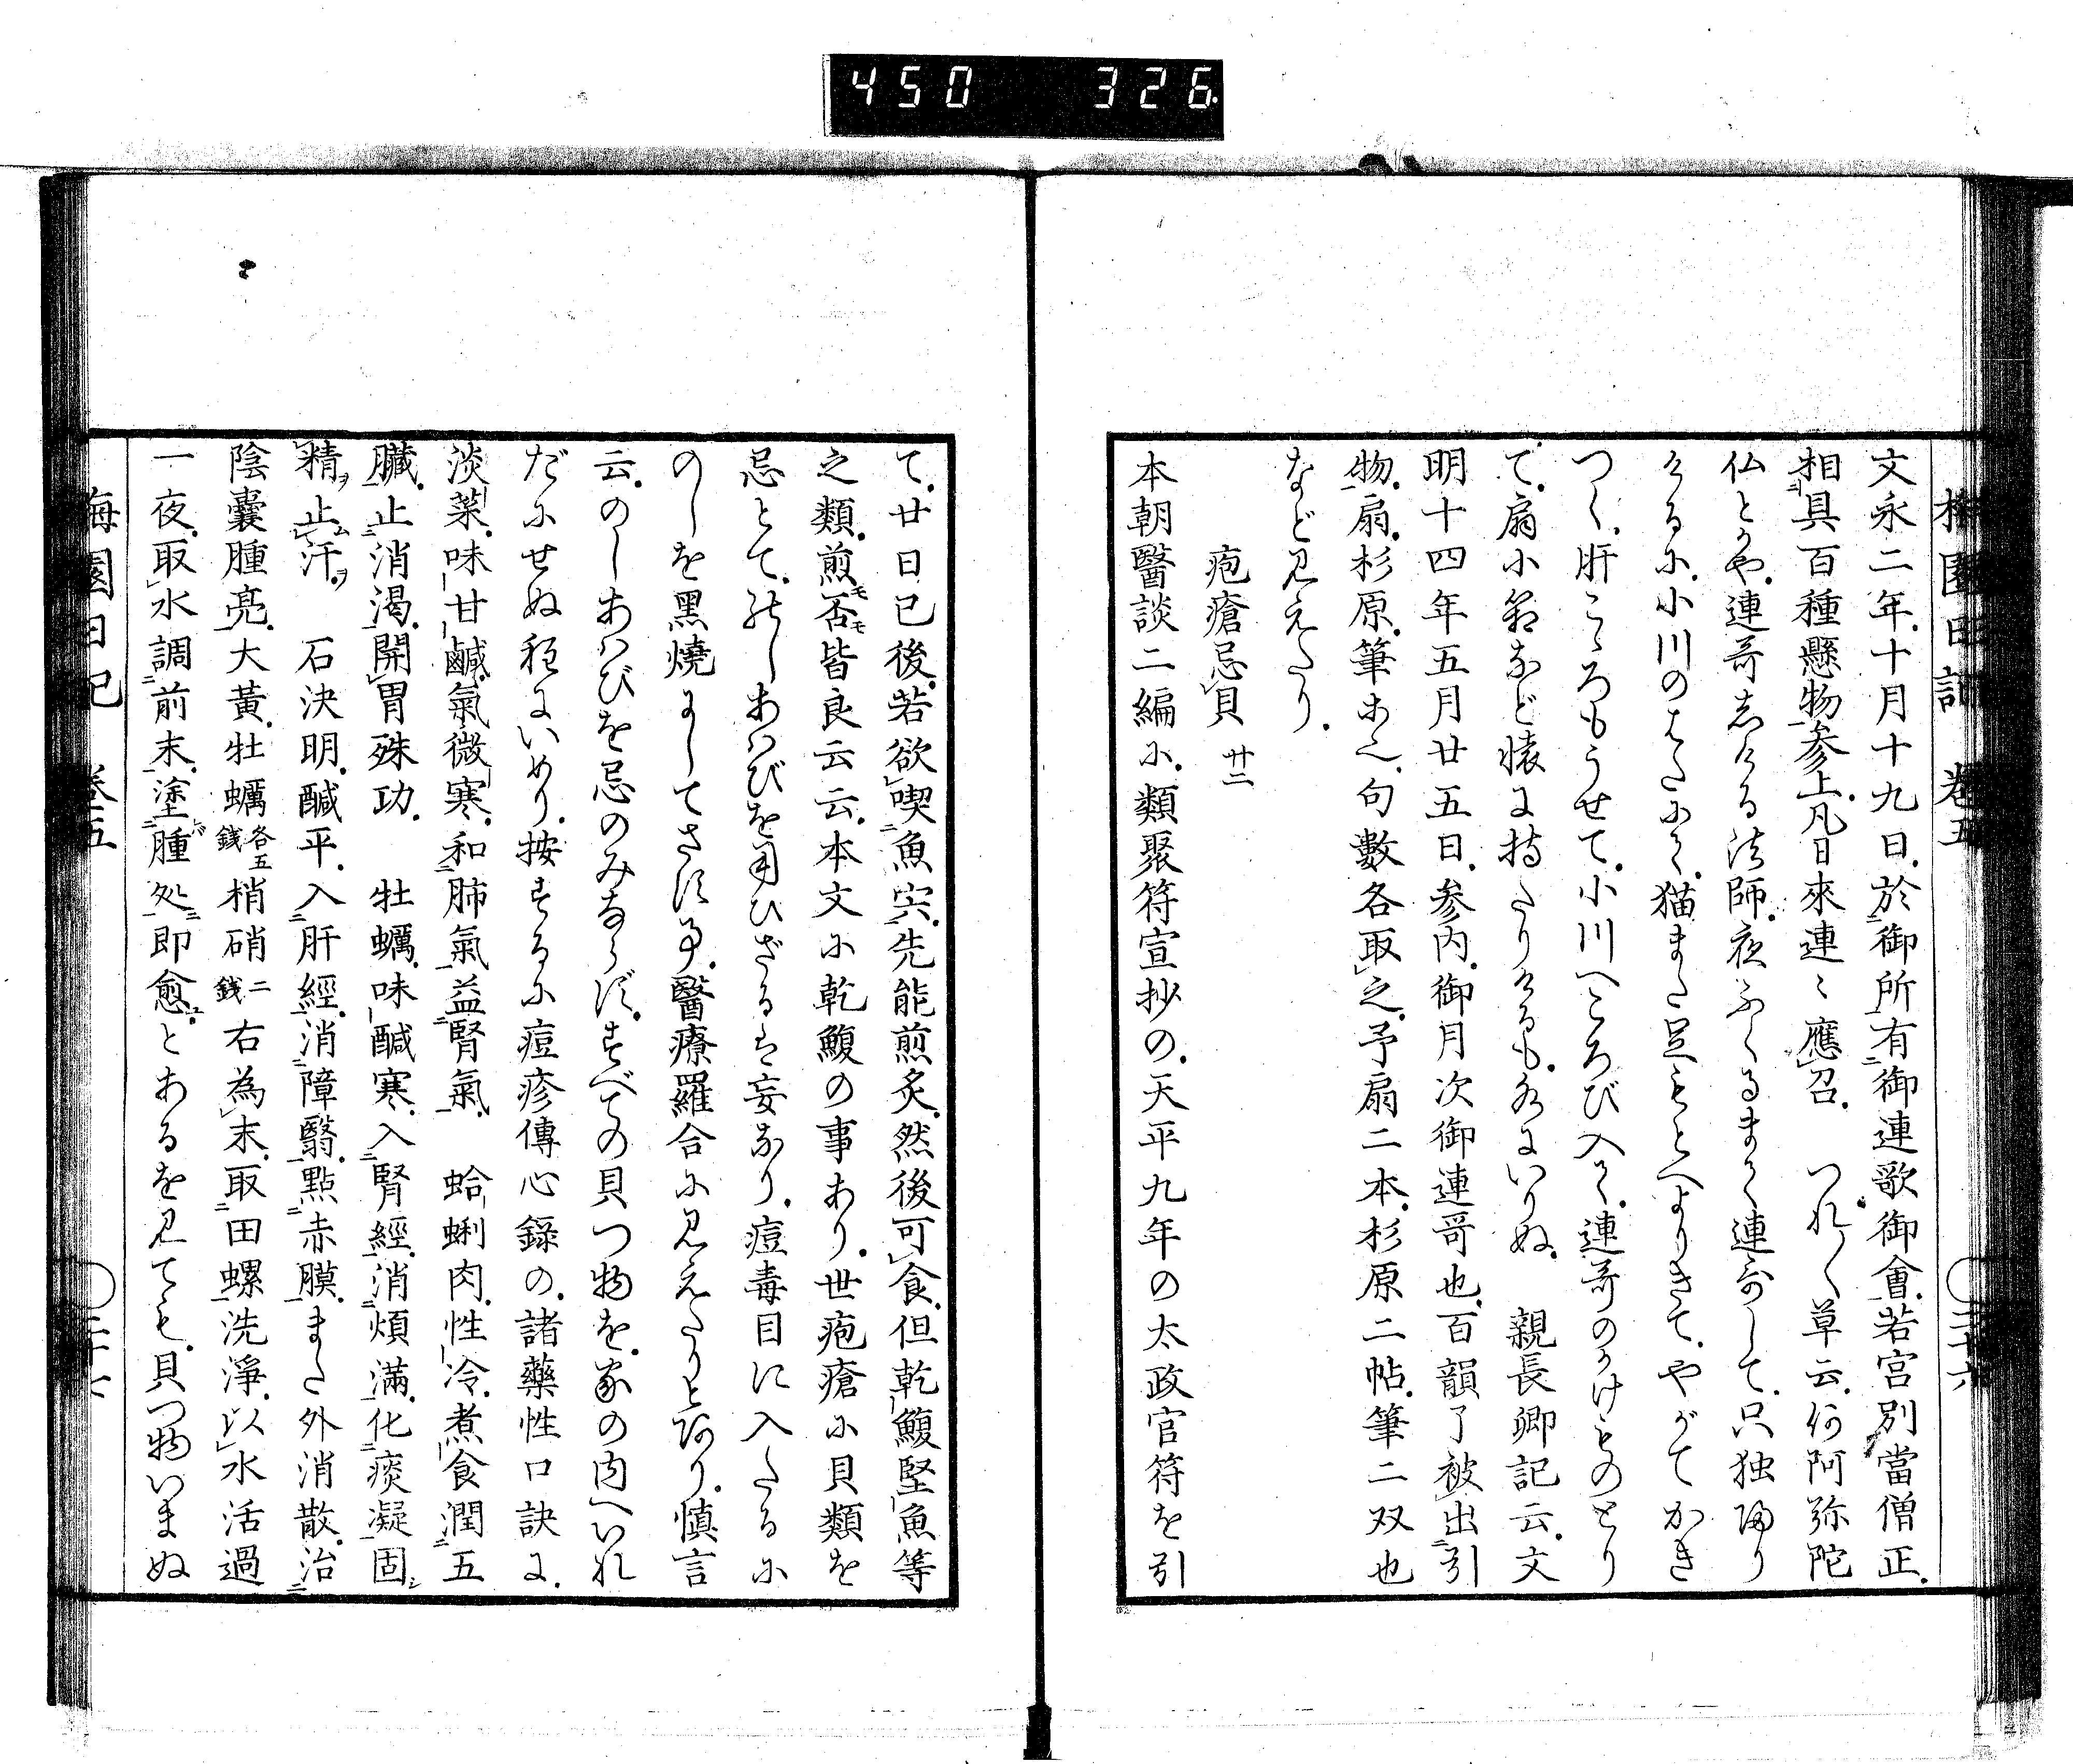 450 326
梅園日記 卷五 三十六
文永二年。十月十九日。於御所有御連歌御會。若宮別當僧正。
相具百種懸物参上。凡日來連〻應召。 つれ〳〵草云。何阿弥陀
仏とかや。連哥しける法師。夜ふくるまで連哥して。只独帰り
けるに。小川のはたにて。猫また足もとへよりきて。やがてかき
つく。肝こゝろもうせて。小川へころび入て。連哥のかけものとり
て。扇小箱など懐に持たりけるも。水にいりぬ。 親長卿記云。文
明十四年五月廿五日。参内。御月次御連哥也。百韻了被出引
物。扇。杉原。筆等也。句數各取之。予扇二本。杉原二帖。筆二双也
など見えたり。
疱瘡忌貝 廿二
本朝醫談二編に。類聚符宣抄の。天平九年の太政官符を引
て。廿日已後。若欲喫魚宍。先能煎炙。然後可食。但乾鰒堅魚等
之類。煎モ否モ皆良云云。本文に乾鰒の事あり。世疱瘡に貝類を
忌とて。のしあはびを用ひざるは妄なり。痘毒目に入たるに
のしを黑燒にしてさす事。醫療羅合に見えたりとあり。愼言
云。のしあはびを忌のみならず。すべての貝つ物を。家の内へいれ
だにせぬ程にいめり。按ずるに痘疹傳心錄の。諸藥性口訣に。
淡菜。味甘鹹。氣微寒。和肺氣益腎氣。 蛤蜊肉。性冷。煮食潤五
臟。止消渴。開胃殊功。 牡蠣。味醎寒。入腎經。消煩滿。化痰凝固シ
精ヲ止ム汗ヲ。 石決明。醎平。入肝經。消障翳。點赤膜。また外消散。治
陰囊腫亮。大黃。牡蠣各五錢梢硝二錢右為末。取田螺洗淨。以水活過
一夜。取水調前末。塗腫処即愈。とあるを見ても。貝つ物いまぬ
梅園日記 卷五 三十七